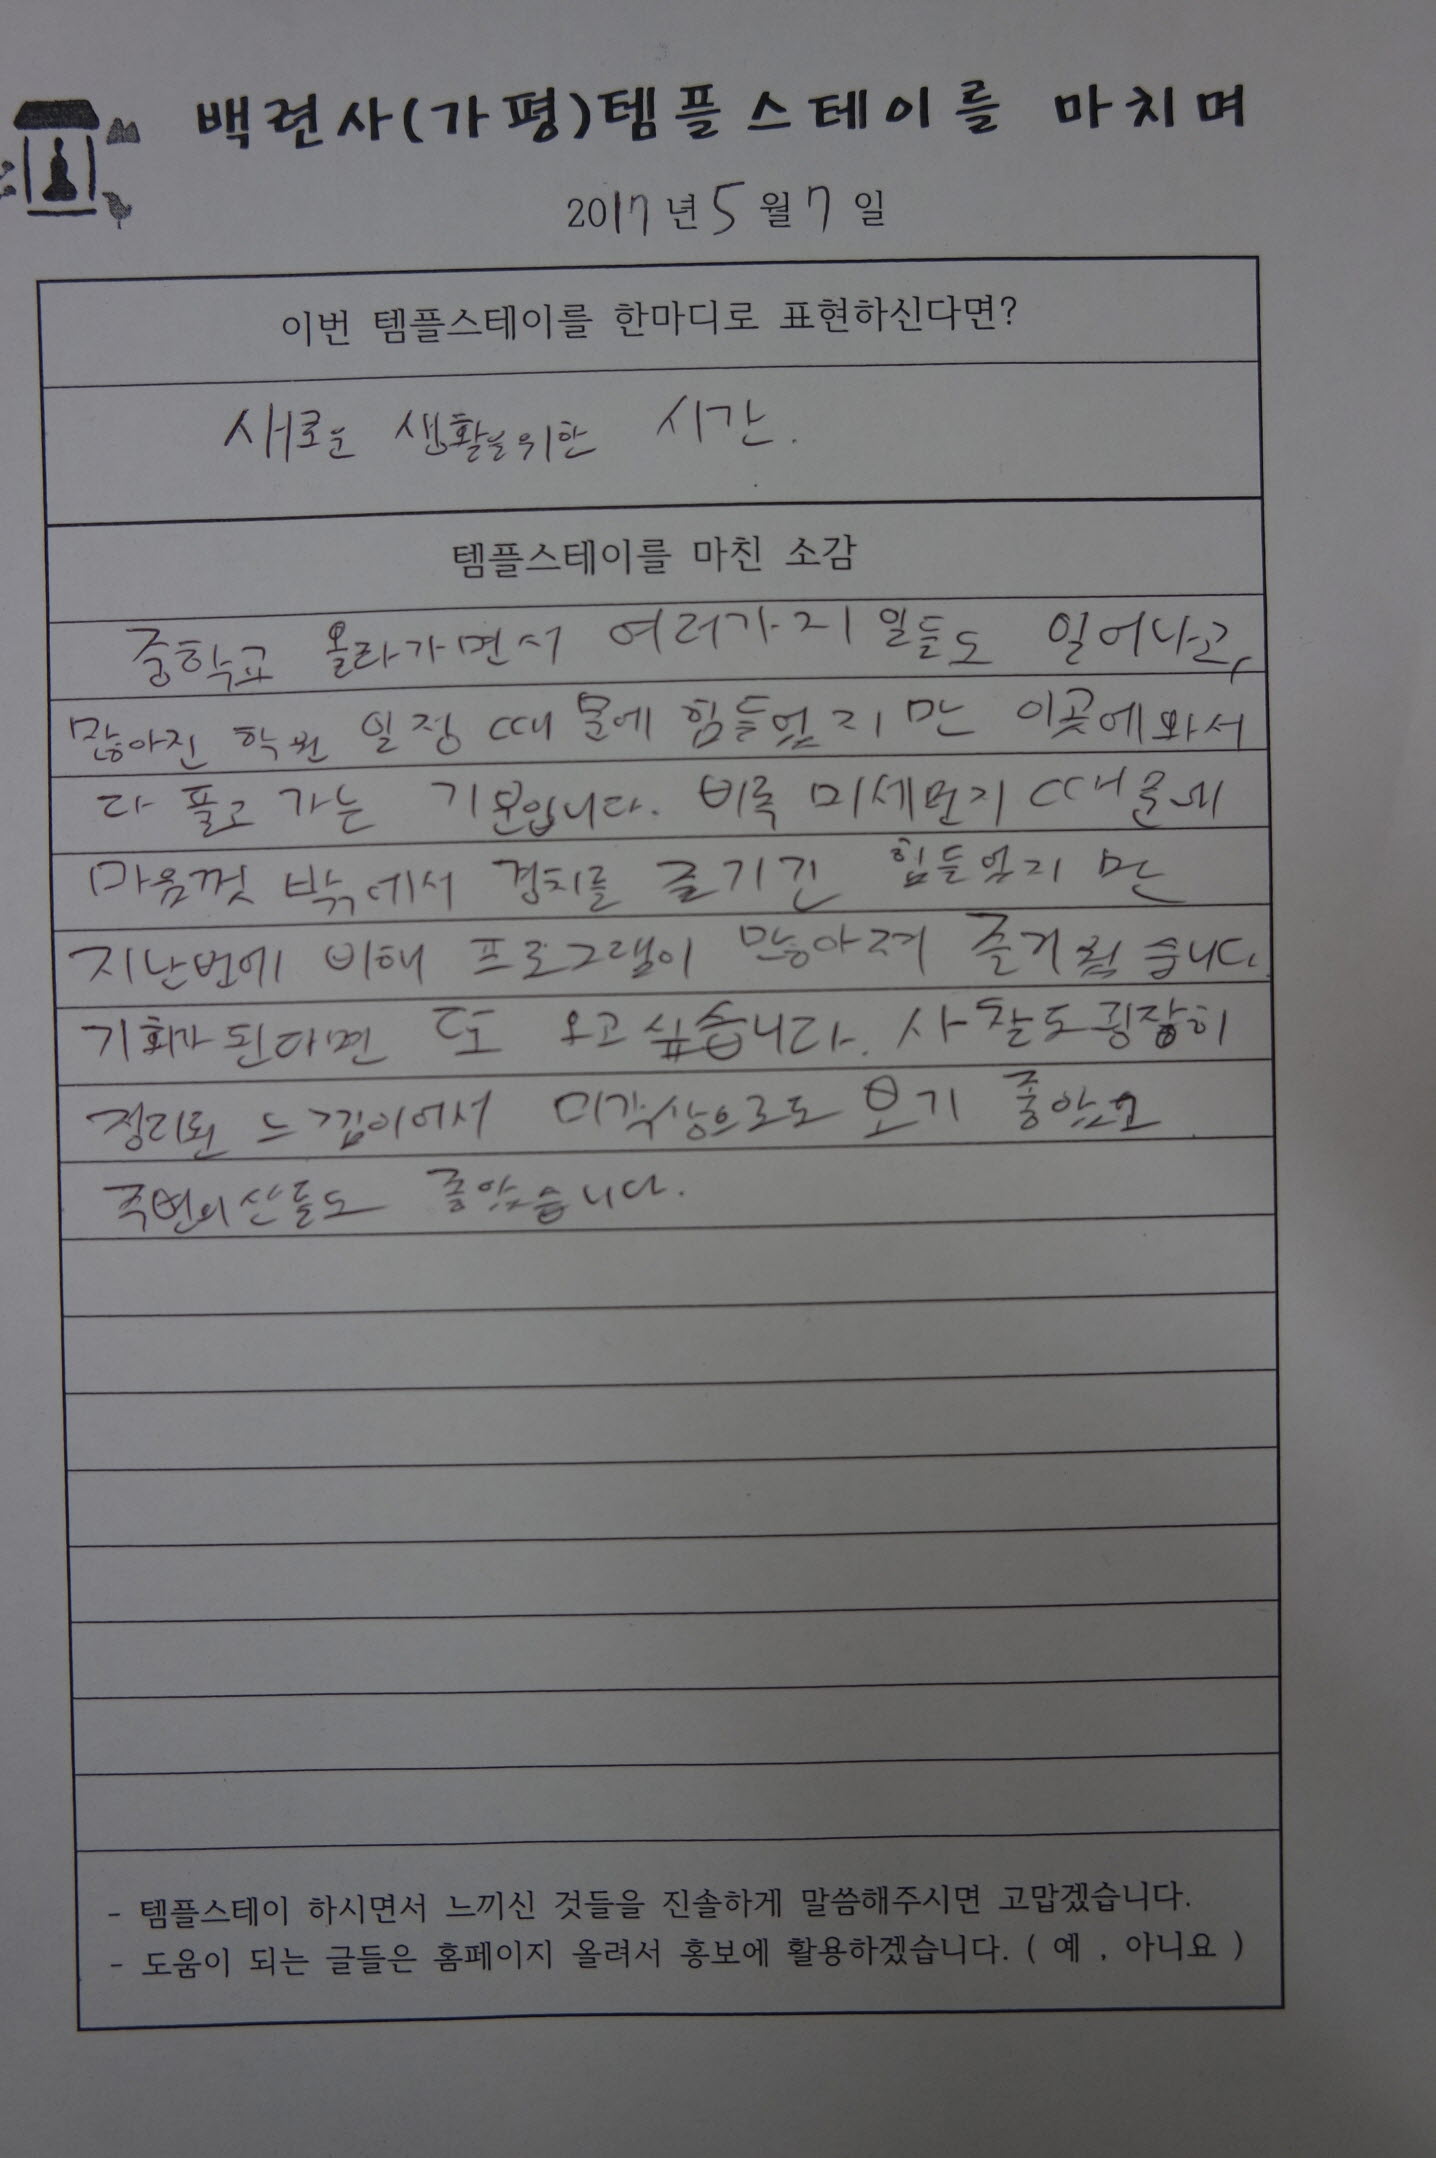 백련사(가평)템플스테이를 마치며
2017년 5월 7일
이번 템플스테이를 한마디로 표현하신다면?
새로운 생활을위한 시간.
템플스테이를 마친 소감
중학교 올라가면서 여러가지 일들도 일어나고,
많아진 학원 일정 때문에 힘들었지만 이곳에와서
다 풀고 가는 기분입니다. 비록 미세먼지 때문에
마음껏 밖에서 경치를 즐기긴 힘들었지만
지난번에 비해 프로그램이 많아져 즐거웠습니다.
기회가 된다면 또 오고싶습니다. 사찰도 굉장히
정리된 느낌이어서 미각상으로도 보기 좋았고
주변의 산들도 좋았습니다.
- 템플스테이 하시면서 느끼신 것들을 진솔하게 말씀해주시면 고맙겠습니다.
- 도움이 되는 글들은 홈페이지 올려서 홍보에 활용하겠습니다. ( 예 , 아니요 )